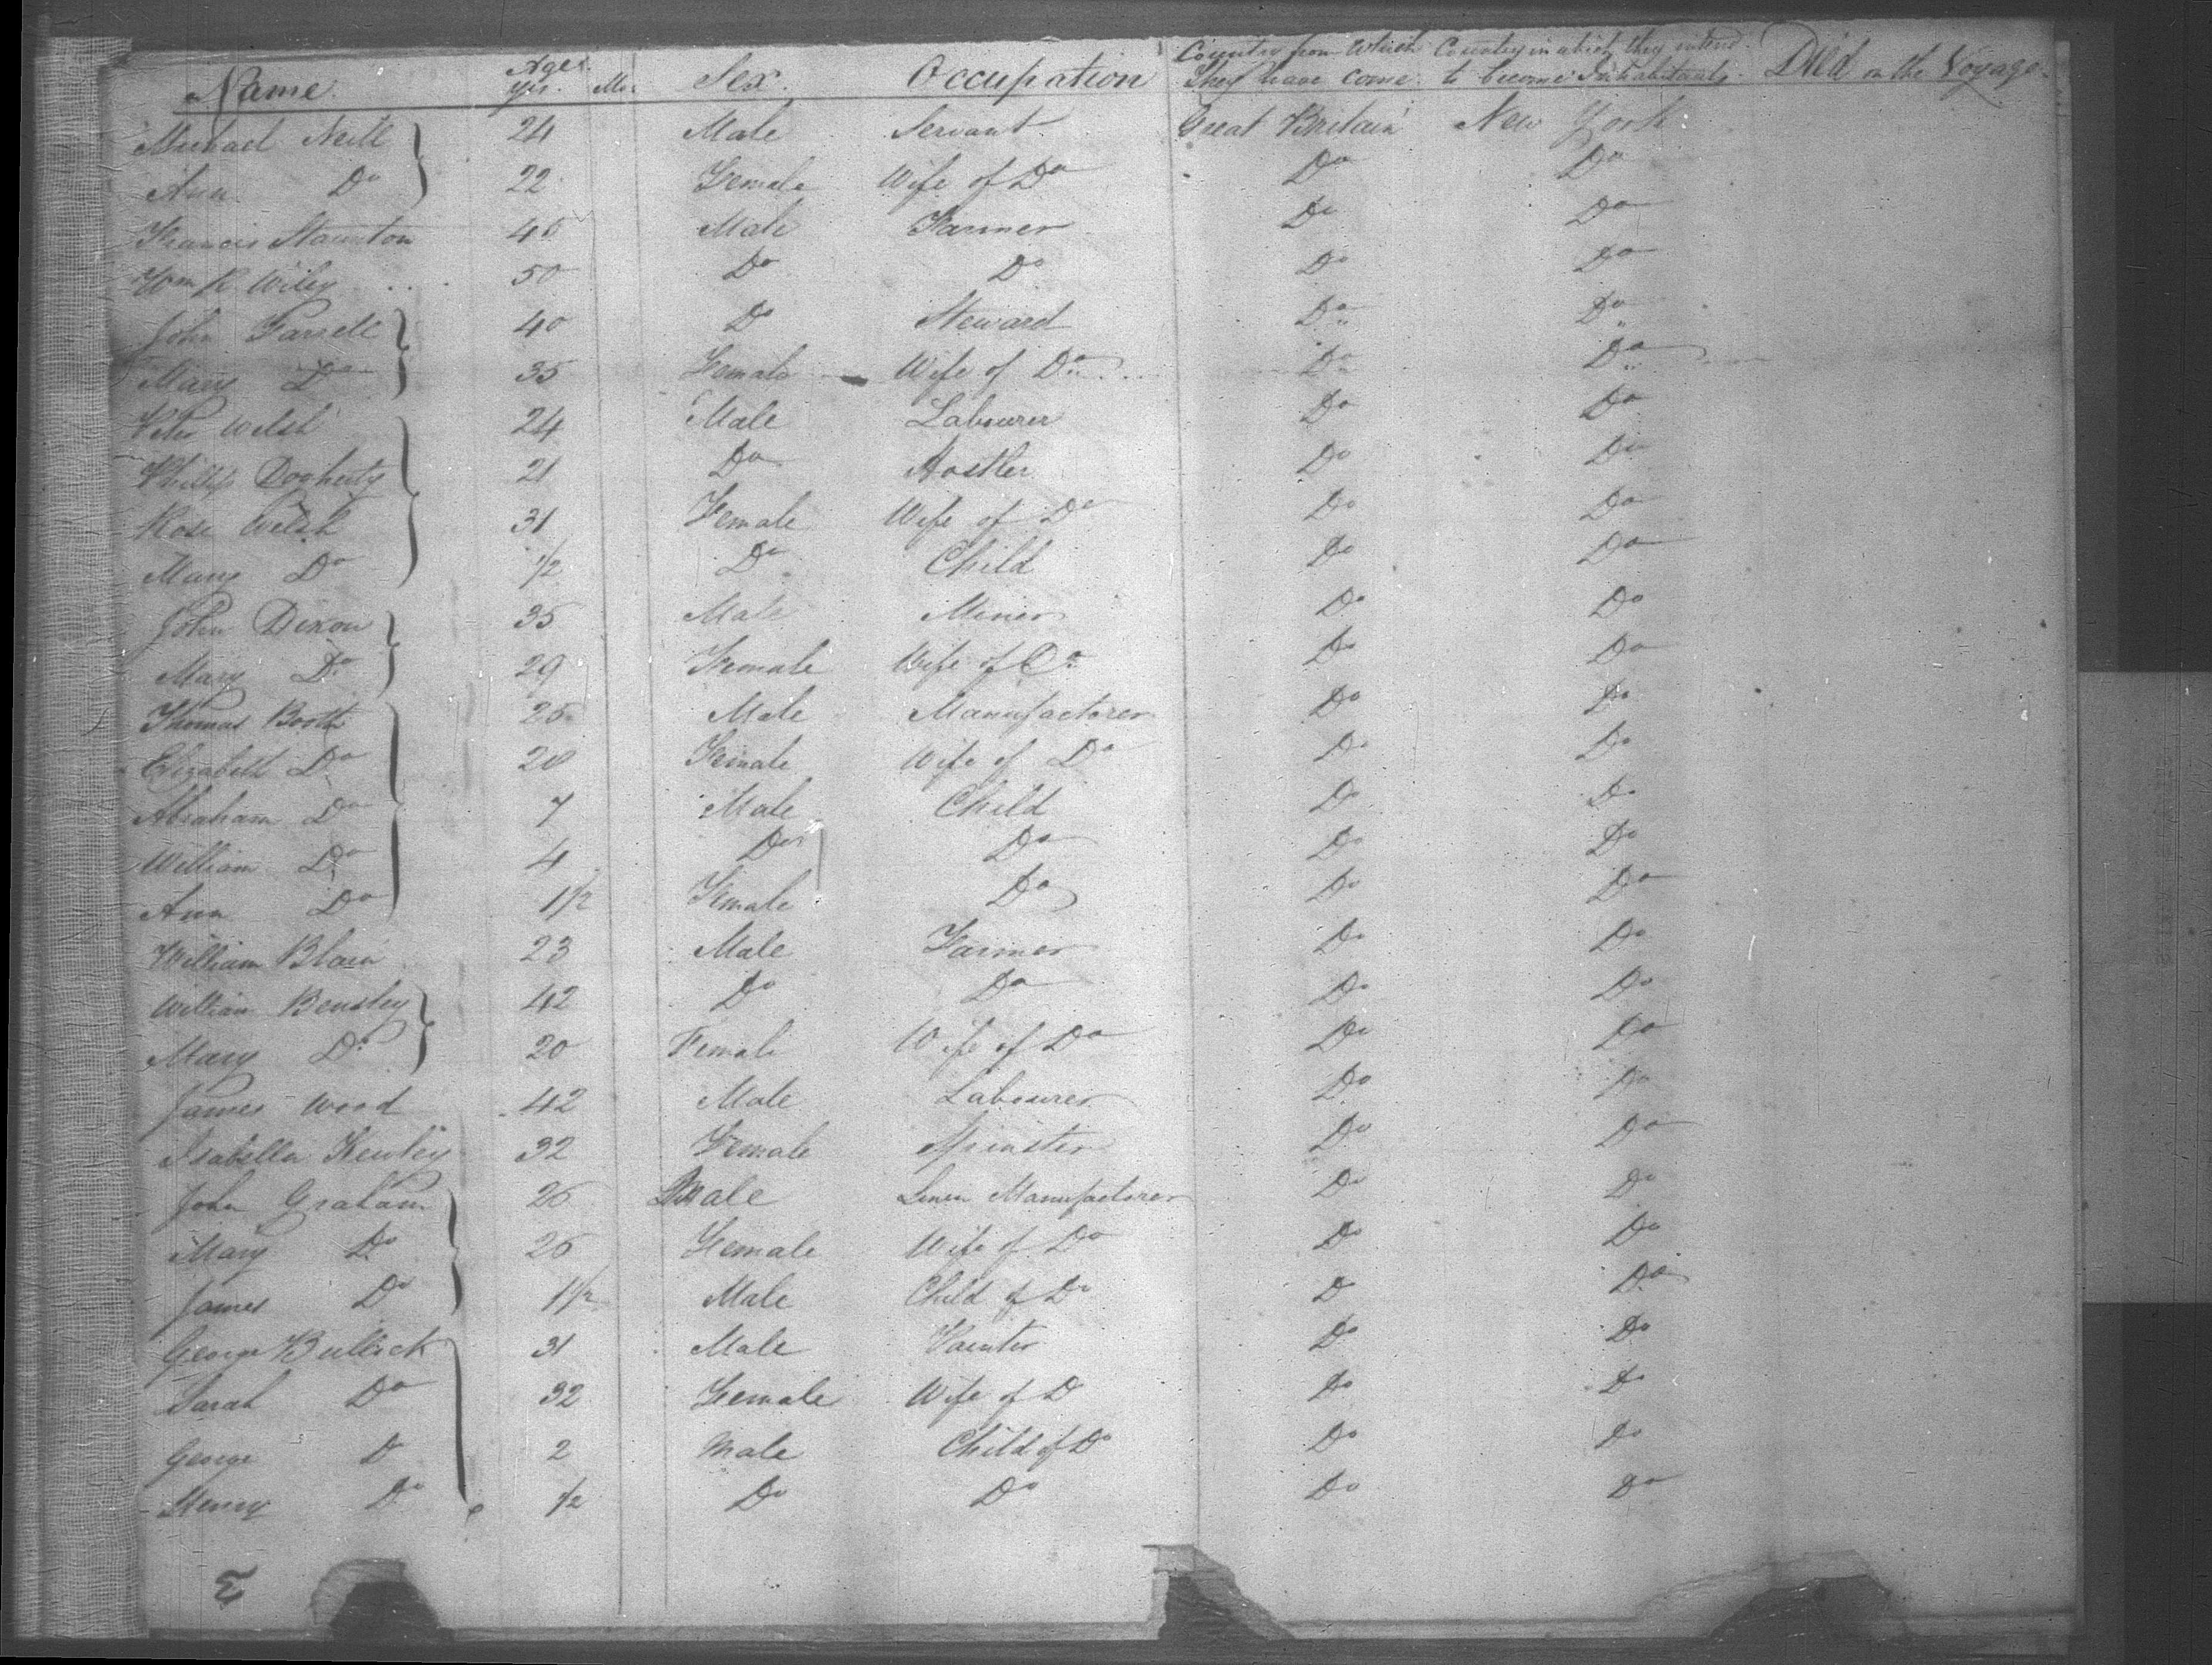 Name. Ages Yrs. Mo. Sex. Occupation Country from which they have come. Country in which they intend to become Inhabitants. Died on the Voyage.
Michael Neill 24 Male Servant Great Britain New York
Ann Do 22 Female Wife of Do Do Do
Francis Staunton 45 Male Farmer Do Do
Wm R Wiley 50 Do Do Do Do
John Farrell 40 Do Steward Do Do
Mary Do 35 Female Wife of Do Do Do
Peter Welsh 24 Male Labourer Do Do
Phillip Dogherty 21 Do Hostler Do Do
Rose Welsh 31 Female Wife of Do Do Do
Mary Do 1/2 Do Child Do Do
John Dixon 35 Male Miner Do Do
Mary Do 29 Female Wife of Do Do Do
Thomas Booth 25 Male Manufacturer Do Do
Elizabeth Do 20 Female Wife of Do Do Do
Abraham Do 7 Male Child Do Do
William Do 4 Do Do Do Do
Ann Do 1 1/2 Female Do Do Do
William Blain 23 Male Farmer Do Do
William Bensley 42 Do Do Do Do
Mary Do 20 Female Wife of Do Do Do
James Wood 42 Male Labourer Do Do
Isabella Kewley 32 Female Spinster Do Do
John Graham 26 Male Linen Manufacturer Do Do
Mary Do 26 Female Wife of Do Do Do
James Do 1 1/2 Male Child of Do D Do
George Bullick 31 Male Painter Do Do
Sarah Do 32 Female Wife of D Do Do
George D 2 Male Child of Do Do Do
Henry Do 1/2 Do Do Do Do